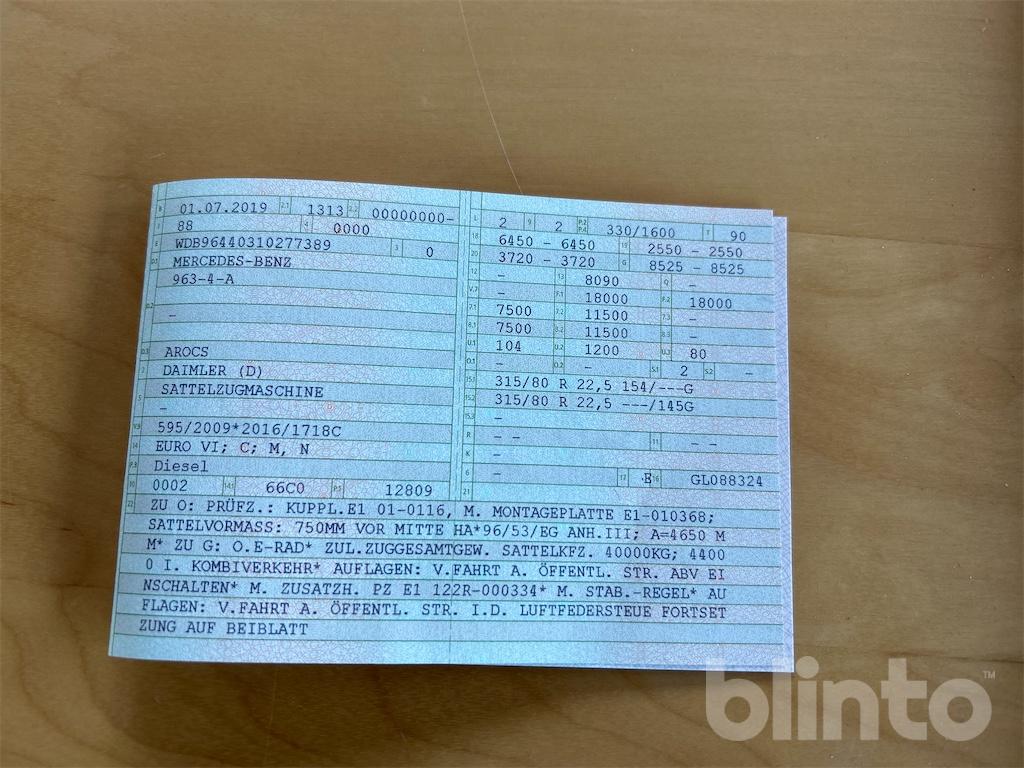 B 01.07.2019 2.1 1313 2.2 00000000-
J 88 4 0000
E WDB96440310277389 3 0
D.1 MERCEDES-BENZ
963-4-A
D.2
–
D.3 AROCS
2 DAIMLER (D)
5 SATTELZUGMASCHINE
–
V.9 595/2009*2016/1718C
14 EURO VI; C; M, N
P.3 Diesel
10 0002 14.1 66C0 P.1 12809
L 2 9 2 P.2 P.4 330/1600 T 90
18 6450 - 6450 19 2550 - 2550
20 3720 - 3720 G 8525 - 8525
12 – 13 8090 Q –
V.7 – F.1 18000 F.2 18000
7.1 7500 7.2 11500 7.3 –
8.1 7500 8.2 11500 8.3 –
U.1 104 U.2 1200 U.3 80
O.1 – O.2 – S.1 2 S.2 –
15.1 315/80 R 22,5 154/---G
15.2 315/80 R 22,5 ---/145G
15.3 –
R – – 11 – –
K –
6 – 17 E 16 GL088324
21
22 ZU O: PRÜFZ.: KUPPL.E1 01-0116, M. MONTAGEPLATTE E1-010368;
SATTELVORMASS: 750MM VOR MITTE HA*96/53/EG ANH.III; A=4650 M
M* ZU G: O.E-RAD* ZUL.ZUGGESAMTGEW. SATTELKFZ. 40000KG; 4400
0 I. KOMBIVERKEHR* AUFLAGEN: V.FAHRT A. ÖFFENTL. STR. ABV EI
NSCHALTEN* M. ZUSATZH. PZ E1 122R-000334* M. STAB.-REGEL* AU
FLAGEN: V.FAHRT A. ÖFFENTL. STR. I.D. LUFTFEDERSTEUE FORTSET
ZUNG AUF BEIBLATT
blinto™